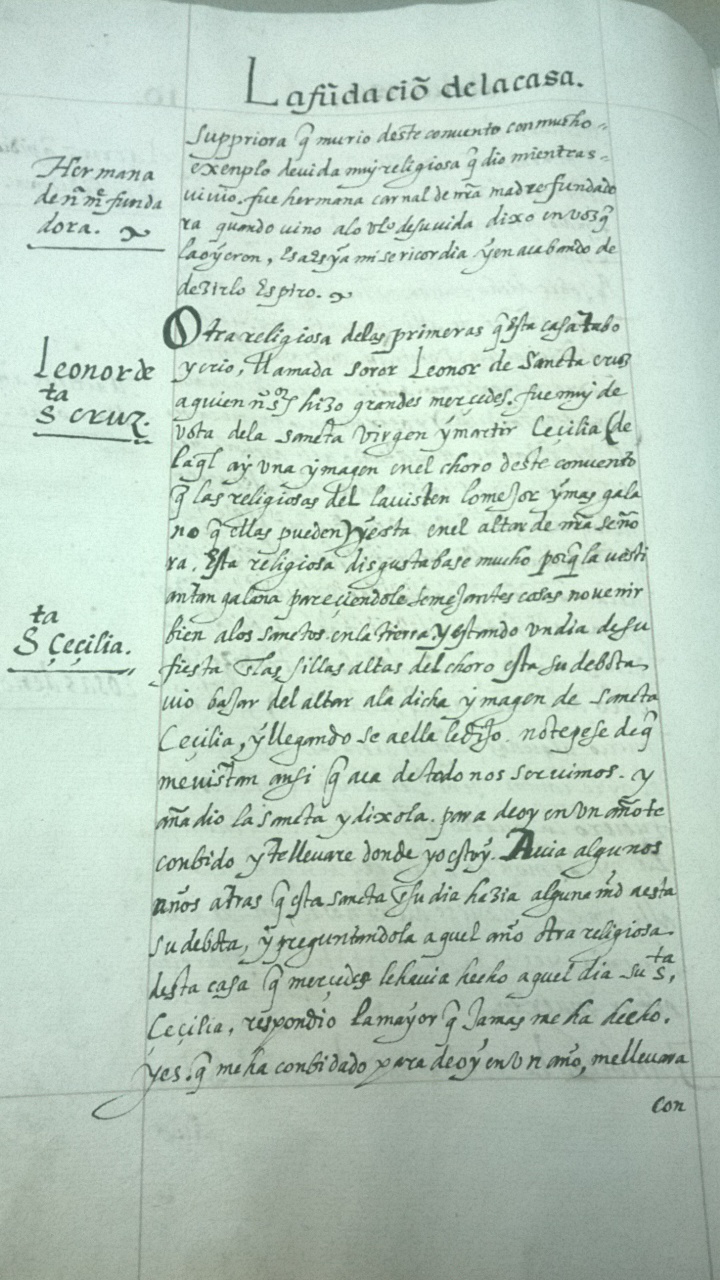 La fũdaciõ dela casa.
Suppriora q̃ murio deste conuento con mucho
exenplo de uida muy religiosa q̃ dio mientras
uiuio. fue hermana carnal de nr̃a madre fundado
ra quando uino alo vlº de su uida dixo en voz q̃
la oyeron, Ea ya misericordia y en acabando de
dezirlo Espiro.
Hermana
de nr̃a mẽ funda
dora.
Otra religiosa delas primeras q̃ Esta casa tubo
y crio, llamada soror Leonor de Sancta cruz
a quien nr̃o sr̃ hizo grandes merçedes. fue muy de
uota dela sancta Virgen y martir Ceçilia (de
la q̃l ay vna ymagen enel choro deste conuento
q̃ las religiosas del la uisten lo mejor y mas gala
no q̃ ellas pueden) y esta enel altar de nr̃a seño
ra. Esta religiosa disgustabase mucho porq̃ la uesti
an tan galana pareçiendole semejantes cosas no uenir
bien alos sanctos en la tierra y estando vn dia de su
fiesta en las sillas altas del choro esta su debota
uio bajar del altar ala dicha ymagen de sancta
Ceçilia, y llegando se a ella le dijo. no te pese de q̃
me uistan ansi q̃ aca de todo nos seruimos. y
añadio la sancta y dixola. para de oy en vn año te
conbido y te lleuare donde yo estoy. Auia algunos
años atras q̃ esta sancta en su dia hazia alguna md̃ a esta
su debota, y preguntandola aquel año otra religiosa
desta casa q̃ merçedes le hauia hecho aquel dia su Sta,
Ceçilia, respondio la mayor q̃ Jamas me ha hecho.
yes. q̃ me ha conbidado para de oy en vn año, me lleuara
con
Leonor de
Sta cruz.
Sta Çeçilia.